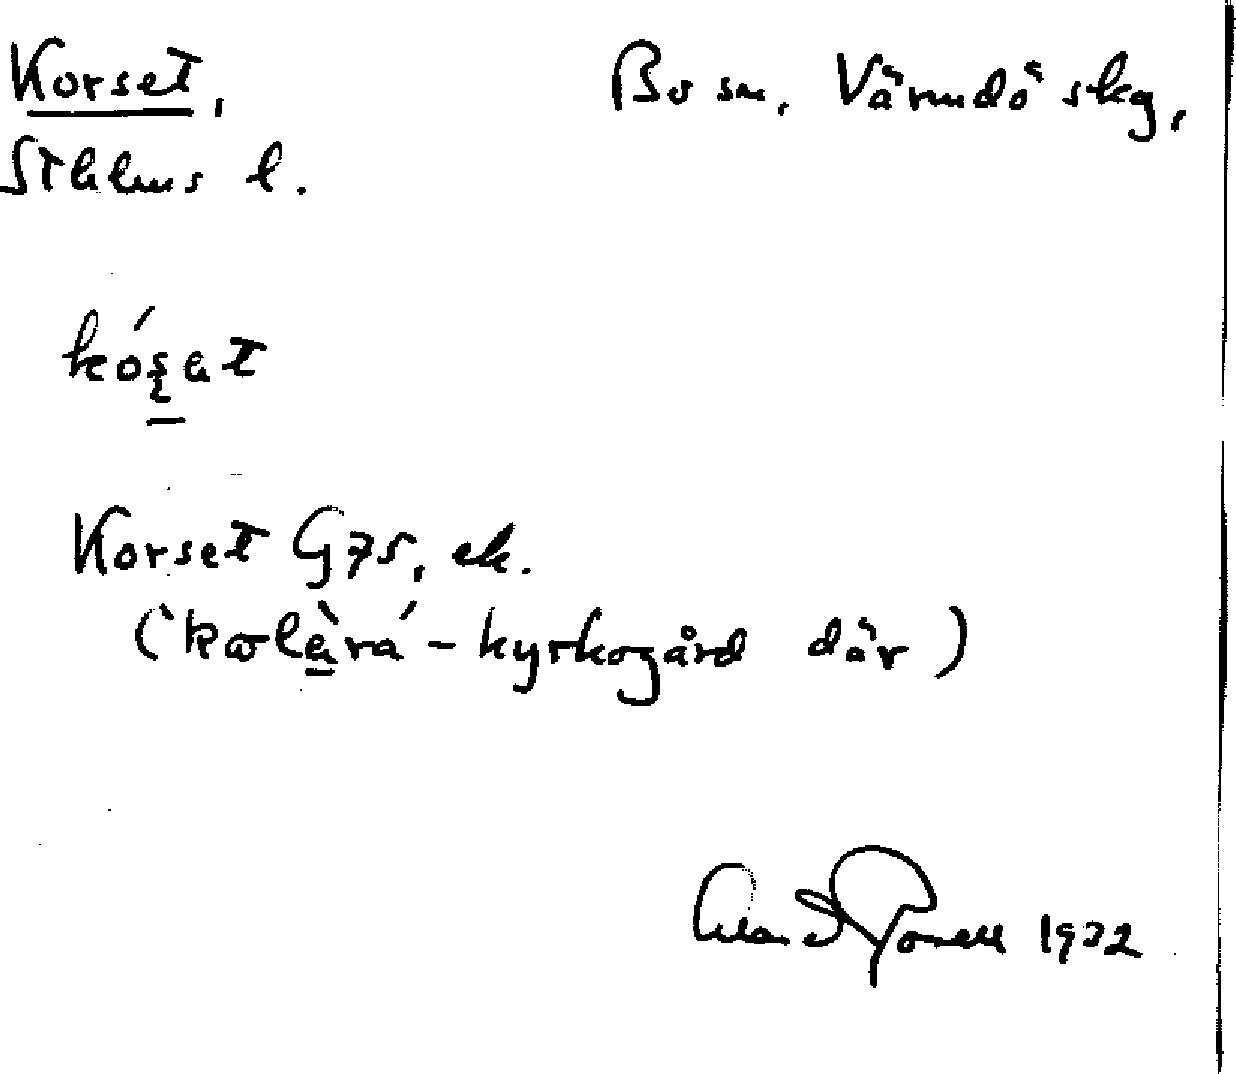 Korset, Bo sn, Värmdö skg,
Sthlms l.
kós̠at
Korset G75, ek.
(kolèrá-kyrkogård där)
1932